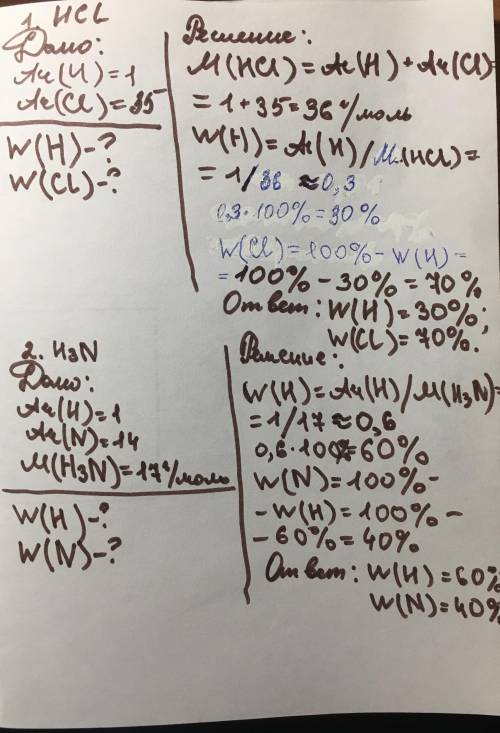 1. HCL
Дано:
Ar(H)=1
Ar(Cl)=35
W(H)-?
W(Cl)-?
Решение:
M(HCl)=Ar(H)+Ar(Cl)=
=1+35=36 г/моль
W(H)=Ar(H)/Mr(HCl)=
=1/36 ≈0,3
0,3·100%=30%
W(Cl)=100%-W(H)=
=100%-30%=70%
Ответ: W(H)=30%;
W(Cl)=70%.
2. H3N
Дано:
Ar(H)=1
Ar(N)=14
M(H3N)=17г/моль
W(H)-?
W(N)-?
Решение:
W(H)=Ar(H)/M(H3N)=
=1/17≈0,6
0,6·100%=60%
W(N)=100%-
-W(H)=100%-
-60%=40%
Ответ: W(H)=60%
W(N)=40%